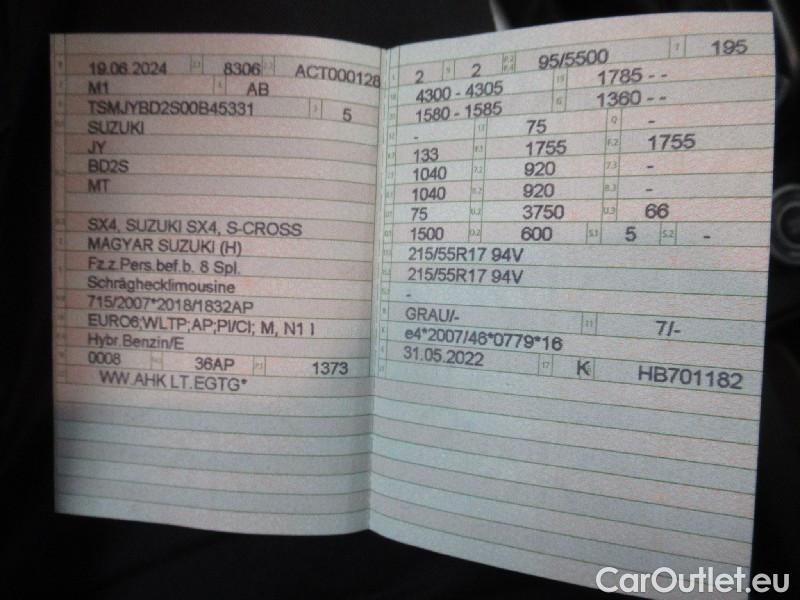 B 19.06.2024 2.1 8306 2.2 ACT000128
M1 AB
TSMJYBD2S00B45331 3 5
SUZUKI
JY
BD2S
MT
SX4, SUZUKI SX4, S-CROSS
MAGYAR SUZUKI (H)
Fz.z.Pers.bef.b. 8 Spl.
Schräghecklimousine
715/2007*2018/1832AP
EURO6;WLTP;AP;PI/CI; M, N1 I
Hybr.Benzin/E
0008 36AP P.1 1373
WW.AHK LT.EGTG*
L 2 9 2 P.2 P.4 95/5500 T 195
18 4300 - 4305 19 1785 - -
20 1580 - 1585 G 1360 - -
- 13 75 Q -
133 F.1 1755 F.2 1755
1040 7.2 920 7.3 -
1040 8.2 920 8.3 -
U.1 75 U.2 3750 U.3 66
O.1 1500 O.2 600 S.1 5 S.2 -
215/55R17 94V
215/55R17 94V
-
R GRAU/- 11 7/-
K e4*2007/46*0779*16
6 31.05.2022 17 K 16 HB701182
CarOutlet.eu